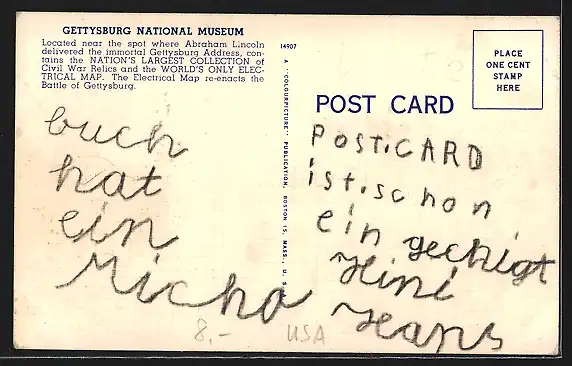 GETTYSBURG NATIONAL MUSEUM
Located near the spot where Abraham Lincoln
delivered the immortal Gettysburg Address, con-
tains the NATION'S LARGEST COLLECTION of
Civil War Relics and the WORLD'S ONLY ELEC-
TRICAL MAP. The Electrical Map re-enacts the
Battle of Gettysburg.
buch
hat
ein
Micha
8,-
14907
A "COLOURPICTURE" PUBLICATION, BOSTON 15, MASS., U. S.
POST CARD
PLACE
ONE CENT
STAMP
HERE
POST.CARD
ist.schon
ein gechigt
Hini
Hans
USA